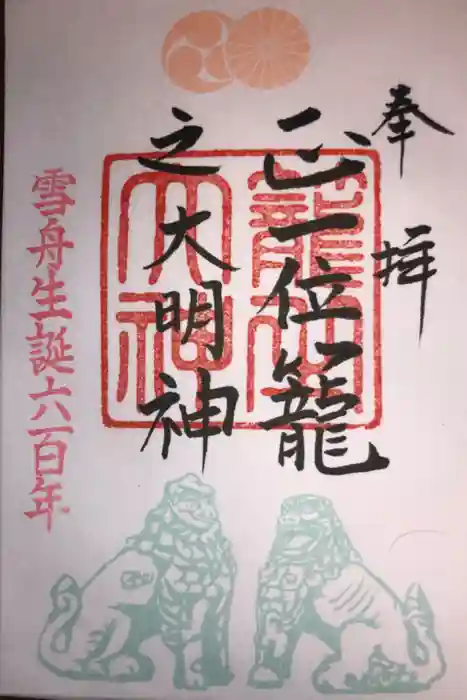 奉拝
正一位籠
之大明神
雪舟生誕六百年